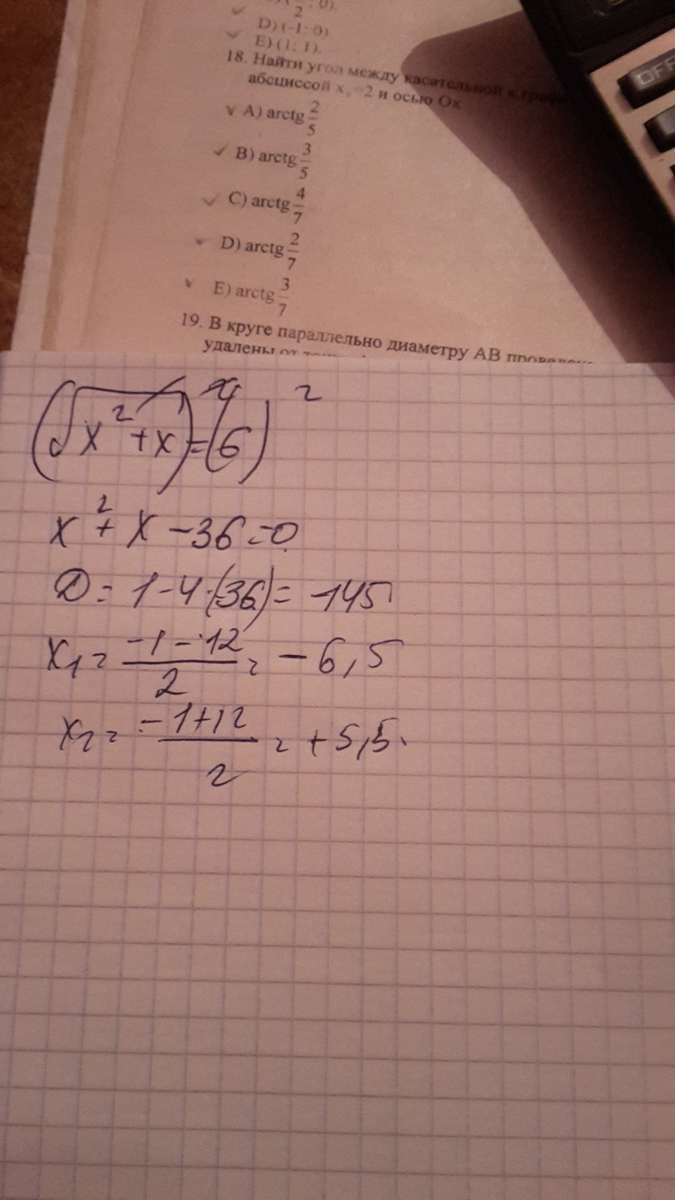 2
D) (-1; 0).
E) (1; 1).
18. Найти угол между касательной к
абсциссой x₀=2 и осью Ox
A) arctg 2/5
B) arctg 3/5
C) arctg 4/7
D) arctg 2/7
E) arctg 3/7
19. В круге параллельно диаметру AB
удалены от
(√x² + x) = (6)²
x² + x - 36 = 0
D = 1 - 4·(36) = -145
x₁ = (-1 - 12)/2 = -6,5
x₂ = (-1+12)/2 = +5,5.
OFF